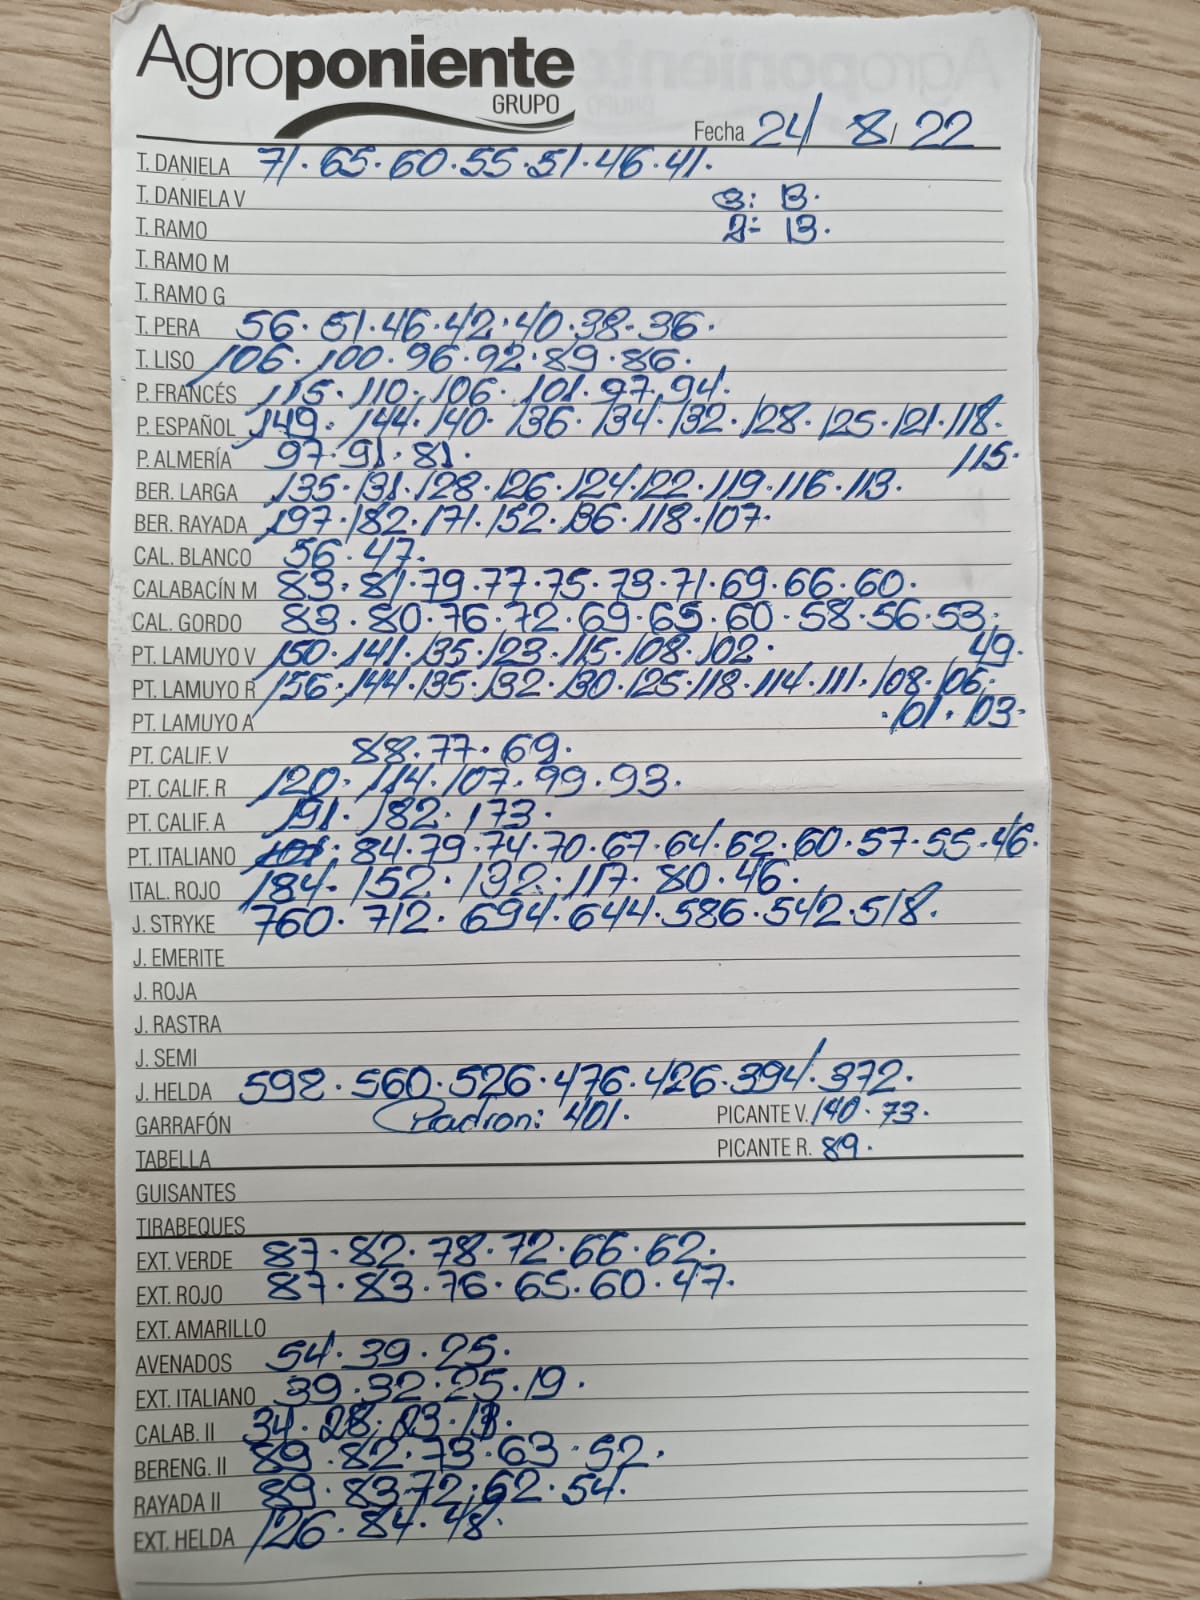 Agroponiente
GRUPO
Fecha 24/ 8/ 22
T. DANIELA 71. 65. 60. 55. 51. 46. 41.
T. DANIELA V 3: 13.
T. RAMO 2: 13.
T. RAMO M
T. RAMO G
T. PERA 56. 51. 46. 42. 40. 38. 36.
T. LISO 106. 100. 96. 92. 89. 86.
P. FRANCÉS 115. 110. 106. 101. 97. 94.
P. ESPAÑOL 149. 144. 140. 136. 134. 132. 128. 125. 121. 118.
P. ALMERÍA 97. 91. 81. 115.
BER. LARGA 135. 131. 128. 126. 124. 122. 119. 116. 113.
BER. RAYADA 197. 182. 171. 152. 136. 118. 107.
CAL. BLANCO 56. 47.
CALABACÍN M 83. 81. 79. 77. 75. 73. 71. 69. 66. 60.
CAL. GORDO 83. 80. 76. 72. 69. 65. 60. 58. 56. 53.
PT. LAMUYO V 150. 141. 135. 123. 115. 108. 102. 49.
PT. LAMUYO R 156. 144. 135. 132. 130. 125. 118. 114. 111. 108. 106.
PT. LAMUYO A .101. 103.
PT. CALIF. V 88. 77. 69.
PT. CALIF. R 120. 114. 107. 99. 93.
PT. CALIF. A 191. 182. 173.
PT. ITALIANO 84. 79. 74. 70. 67. 64. 62. 60. 57. 55. 46.
ITAL. ROJO 184. 152. 132. 117. 80. 46.
J. STRYKE 760. 712. 694. 644. 586. 542. 518.
J. EMERITE
J. ROJA
J. RASTRA
J. SEMI
J. HELDA 592. 560. 526. 476. 426. 394. 372.
GARRAFÓN Padron: 401. PICANTE V. 140. 73.
TABELLA PICANTE R. 89.
GUISANTES
TIRABEQUES
EXT. VERDE 87. 82. 78. 72. 66. 62.
EXT. ROJO 87. 83. 76. 65. 60. 47.
EXT. AMARILLO
AVENADOS 54. 39. 25.
EXT. ITALIANO 39. 32. 25. 19.
CALAB. II 34. 28. 23.
BERENG. II 89. 82. 73. 63. 52.
RAYADA II 89. 83. 72. 62. 54.
EXT. HELDA 126. 84. 48.